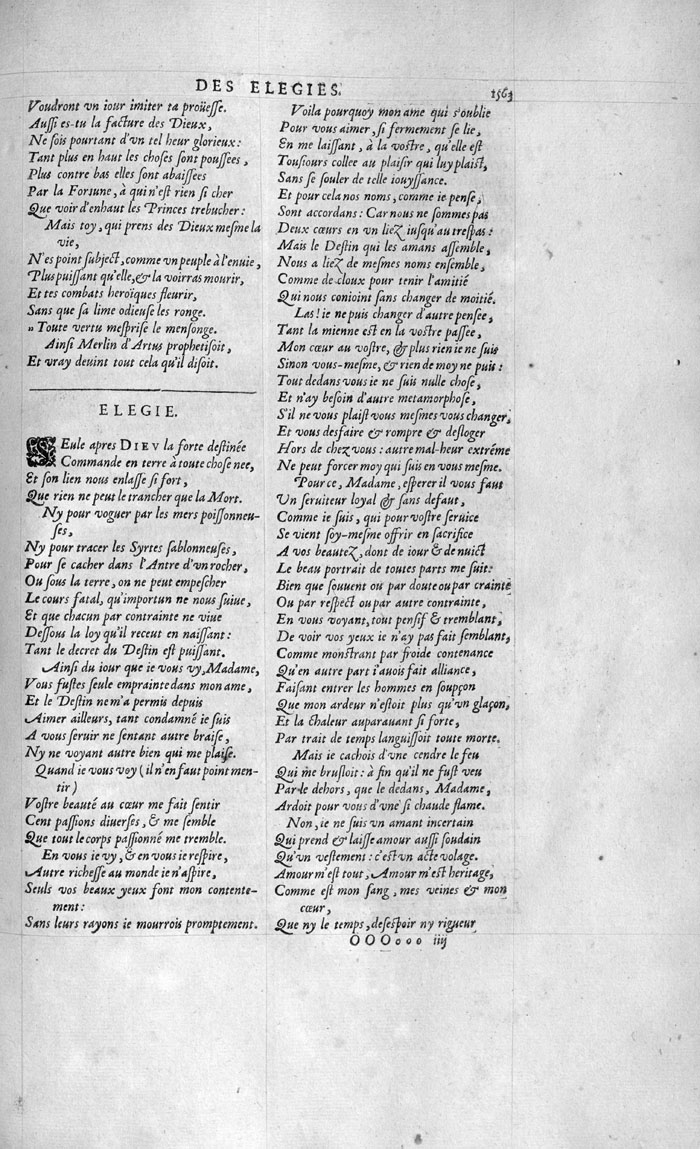 DES ELEGIES. 1563
Voudront vn iour imiter ta proüesse.
Aussi es-tu la facture des Dieux,
Ne sois pourtant d'vn tel heur glorieux:
Tant plus en haut les choses sont poussées,
Plus contre bas elles sont abaissées
Par la Fortune, à qui n'est rien si cher
Que voir d'enhaut les Princes trebucher:
Mais toy, qui prens des Dieux mesme la
vie,
N'es point subject, comme vn peuple à l'enuie,
Plus puissant qu'elle, & la voirras mourir,
Et tes combats heroïques fleurir,
Sans que sa lime odieuse les ronge.
" Toute vertu mesprise le mensonge.
Ainsi Merlin d'Artus prophetisoit,
Et vray deuint tout cela qu'il disoit.
ELEGIE.
SEule apres DIEV la forte destinée
Commande en terre à toute chose nee,
Et son lien nous enlasse si fort,
Que rien ne peut le trancher que la Mort.
Ny pour voguer par les mers poissonneu-
ses,
Ny pour tracer les Syrtes sablonneuses,
Pour se cacher dans l'Antre d'vn rocher,
Ou sous la terre, on ne peut empescher
Le cours fatal, qu'importun ne nous suiue,
Et que chacun par contrainte ne viue
Dessous la loy qu'il receut en naissant:
Tant le decret du Destin est puissant.
Ainsi du iour que ie vous vy, Madame,
Vous fustes seule emprainte dans mon ame,
Et le Destin ne m'a permis depuis
Aimer ailleurs, tant condamné ie suis
A vous seruir ne sentant autre braise,
Ny ne voyant autre bien qui me plaise.
Quand ie vous voy (il n'en faut point men-
tir)
Vostre beauté au cœur me fait sentir
Cent passions diuerses, & me semble
Que tout le corps passionné me tremble.
En vous ie vy, & en vous ie respire,
Autre richesse au monde ie n'aspire,
Seuls vos beaux yeux font mon contente-
ment:
Sans leurs rayons ie mourrois promptement.
Voila pourquoy mon ame qui s'oublie
Pour vous aimer, si fermement se lie,
En me laissant, à la vostre, qu'elle est
Tousiours collee au plaisir qui luy plaist,
Sans se souler de telle iouyssance.
Et pour cela nos noms, comme ie pense,
Sont accordans: Car nous ne sommes pas
Deux cœurs en vn liez iusqu'au trespas:
Mais le Destin qui les amans assemble,
Nous a liez de mesmes noms ensemble,
Comme de cloux pour tenir l'amitié
Qui nous conioint sans changer de moitié.
Las! ie ne puis changer d'autre pensee,
Tant la mienne est en la vostre passée,
Mon cœur au vostre, & plus rien ie ne suis
Sinon vous-mesme, & rien de moy ne puis:
Tout dedans vous ie ne suis nulle chose,
Et n'ay besoin d'autre metamorphose,
S'il ne vous plaist vous mesmes vous changer,
Et vous desfaire & rompre & desloger
Hors de chez vous: autre mal-heur extréme
Ne peut forcer moy qui suis en vous mesme.
Pource, Madame, esperer il vous faut
Vn seruiteur loyal & sans defaut,
Comme ie suis, qui pour vostre seruice
Se vient soy-mesme offrir en sacrifice
A vos beautez, dont de iour & de nuict
Le beau portrait de toutes parts me suit:
Bien que souuent ou par doute ou par crainte
Ou par respect ou par autre contrainte,
En vous voyant, tout pensif & tremblant,
De voir vos yeux ie n'ay pas fait semblant,
Comme monstrant par froide contenance
Qu'en autre part i'auois fait alliance,
Faisant entrer les hommes en soupçon
Que mon ardeur n'estoit plus qu'vn glaçon,
Et la chaleur auparauant si forte,
Par trait de temps languissoit toute morte.
Mais ie cachois d'vne cendre le feu
Qui me brusloit: à fin qu'il ne fust veu
Par-le dehors, que le dedans, Madame,
Ardoit pour vous d'vne si chaude flame.
Non, ie ne suis vn amant incertain
Qui prend & laisse amour aussi soudain
Qu'vn vestement: c'est vn acte volage.
Amour m'est tout, Amour m'est heritage,
Comme est mon sang, mes veines & mon
cœur,
Que ny le temps, desespoir ny rigueur
OOOooo iiij